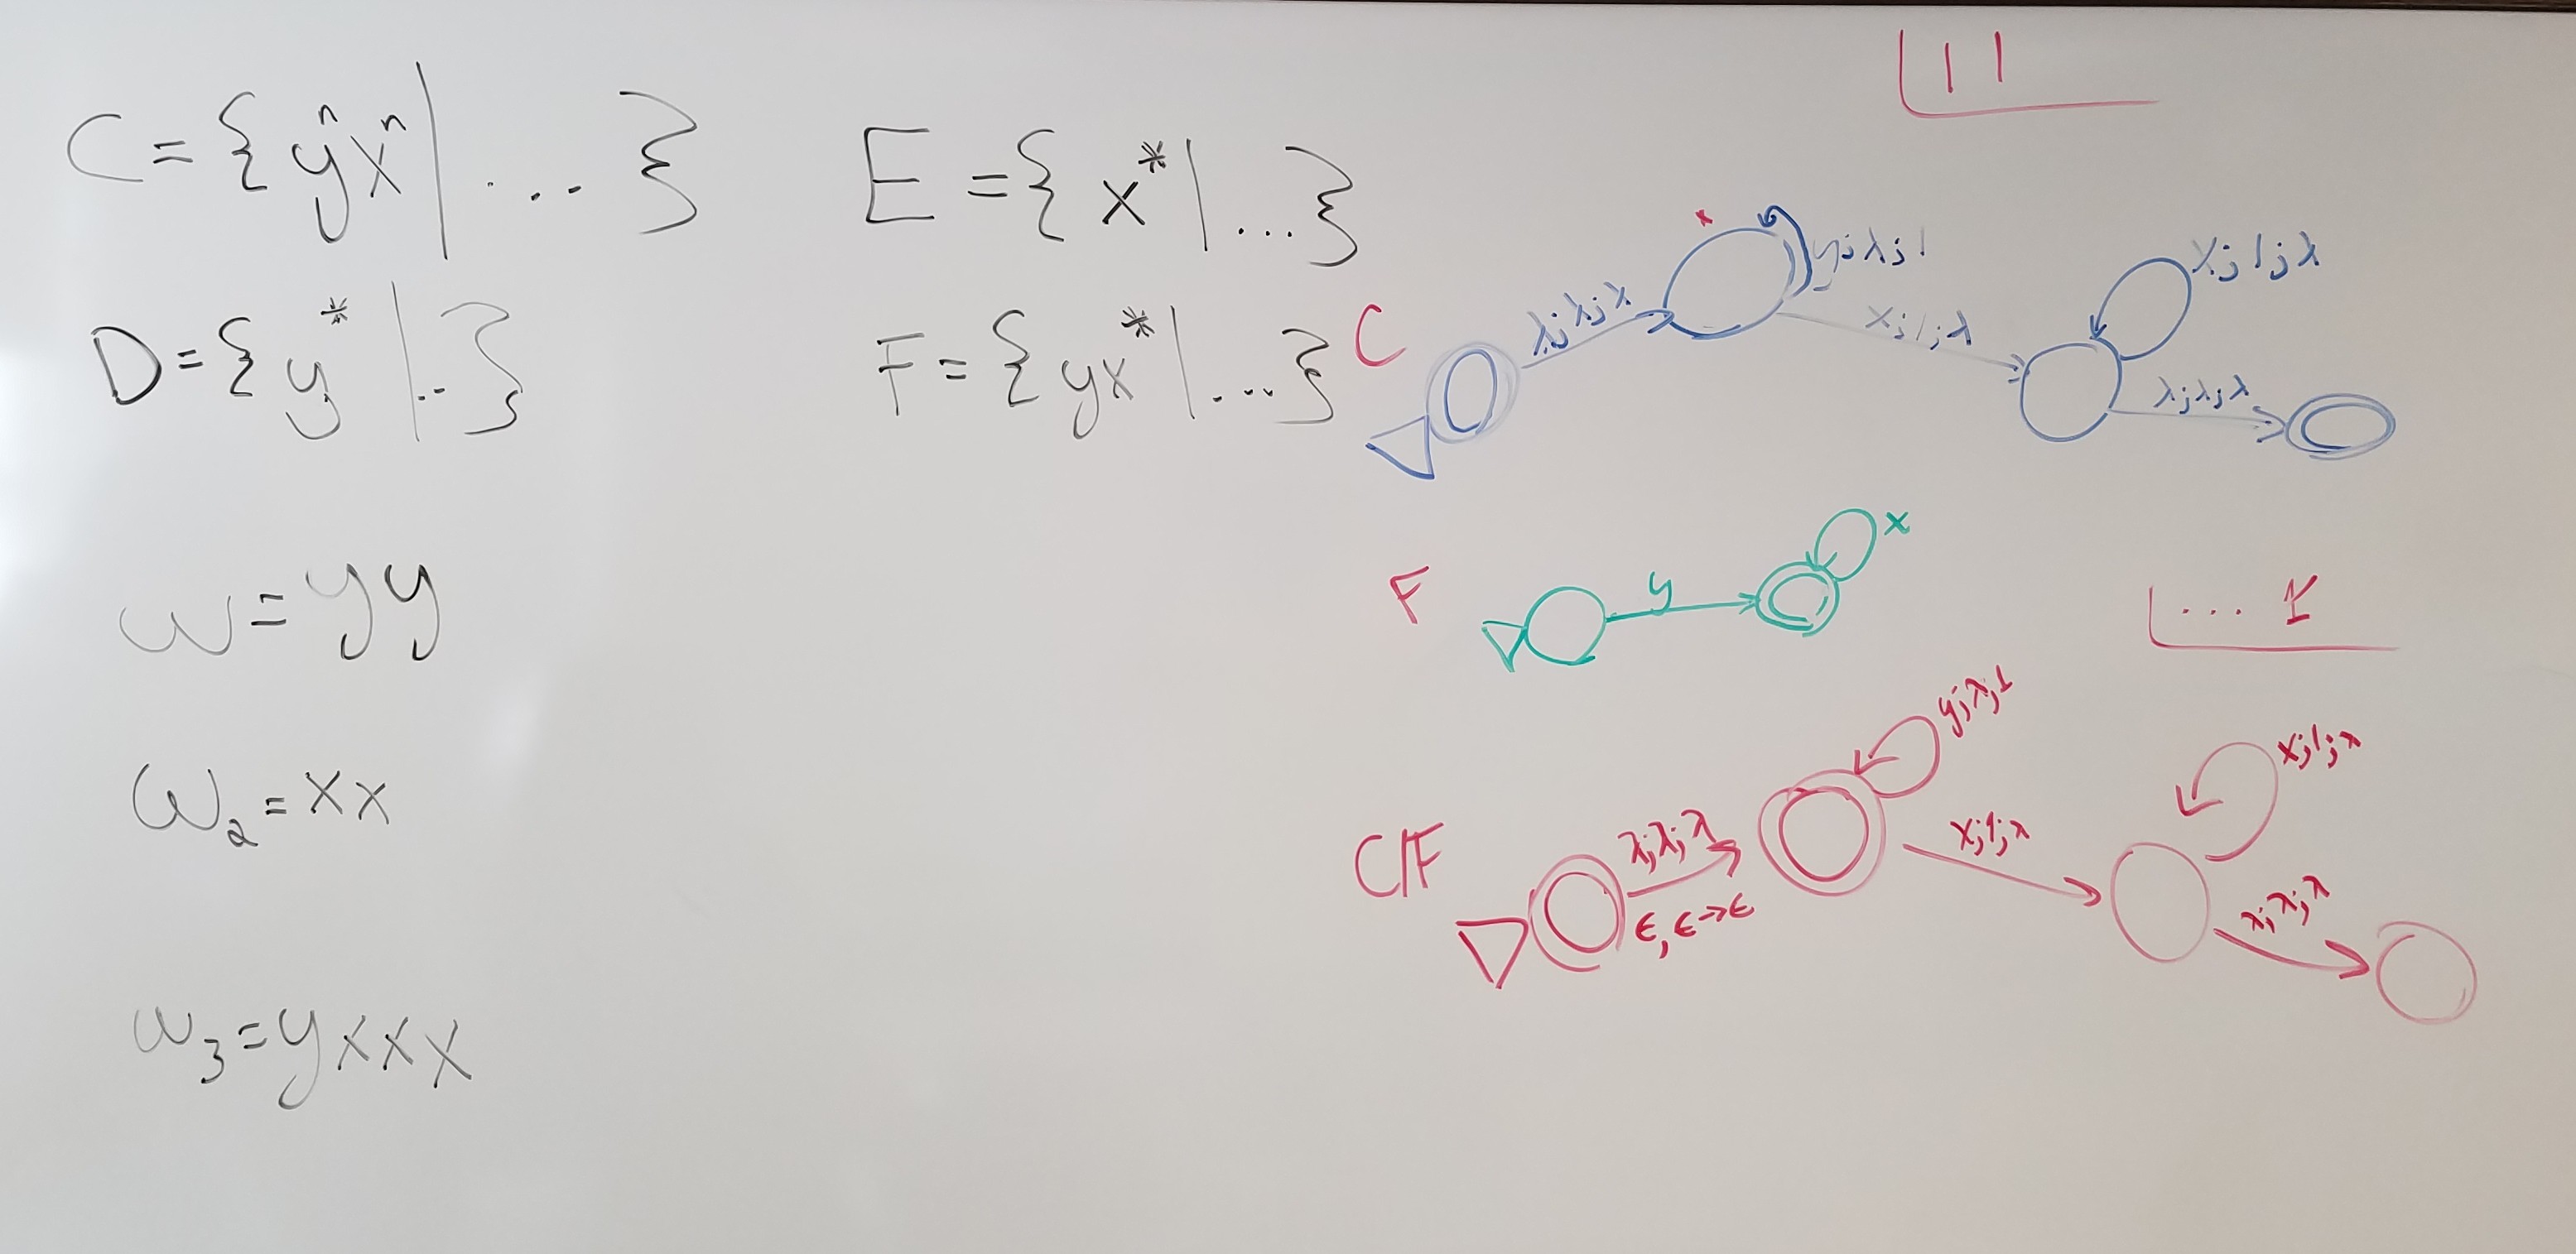 C = { yⁿxⁿ | ... }
E = { x* | ... }
D = { y* | .. }
F = { yx* | ... }
w = yy
w₂ = xx
w₃ = yxxx
11
C
λ;λ;λ
y;λ;1
x;1;λ
x;1;λ
λ;λ;λ
F
y
x
... 1
C/F
λ;λ;λ
ϵ, ϵ→ϵ
y;λ;1
x;1;λ
x;1;λ
λ;λ;λ